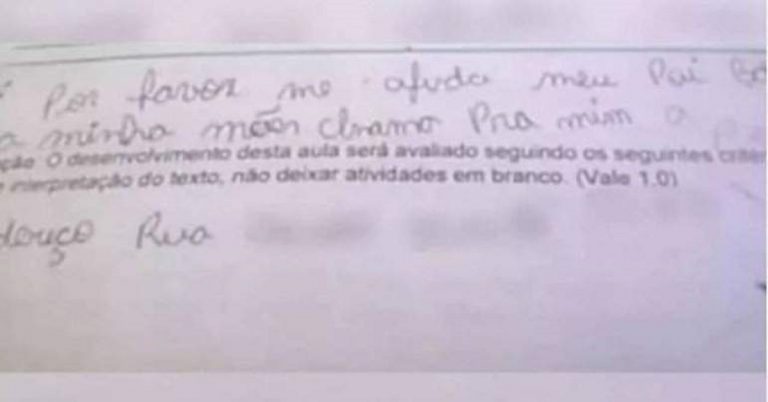 Por favor me ajuda meu Pai
a minha mãen chramo Pra mim a
ção O desenvolvimento desta aula será avaliado seguindo os seguintes criter
e interpretação do texto, não deixar atividades em branco. (Vale 1.0)
douço Rua